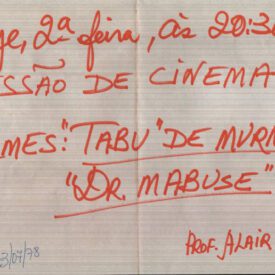 je, 2ª feira, às 20:30
SSÃO DE CINEMA
MES: "TABU" DE MURN
"DR. MABUSE"
3/07/78
PROF. ALAIR